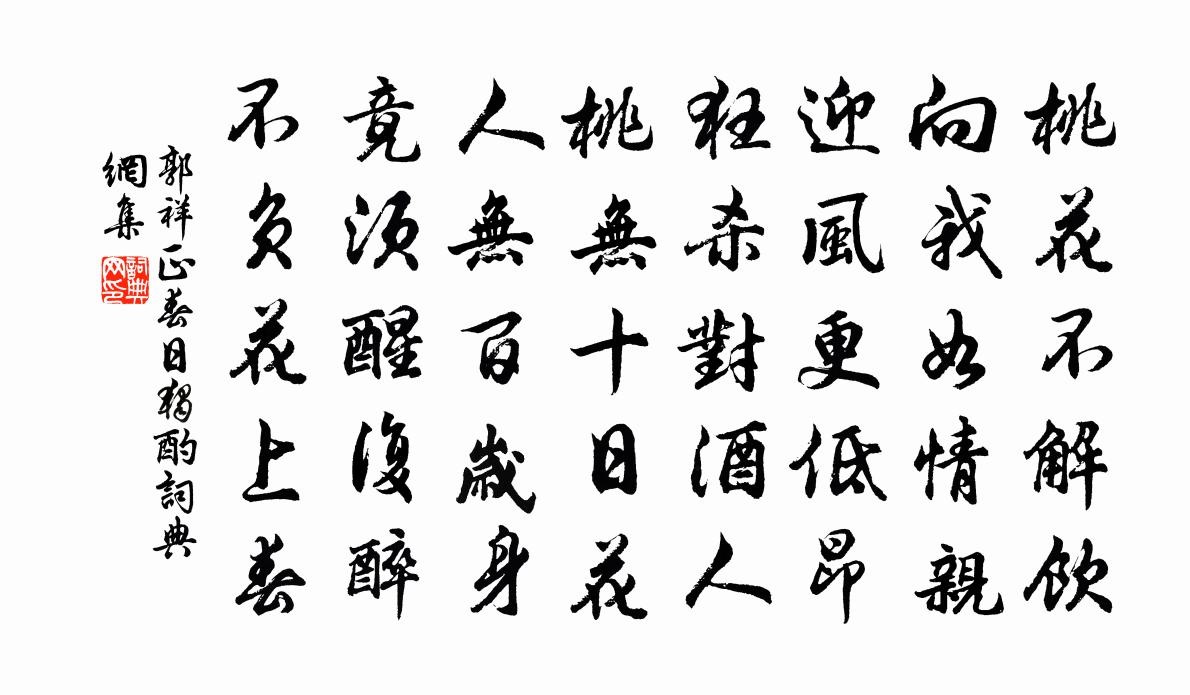 桃花不解飲
向我如情親
迎風更低昂
狂杀對酒人
桃無十日花
人無百歲身
竟須醒復醉
不負花上春
郭祥正春日獨酌詞典
網集
詞典網印